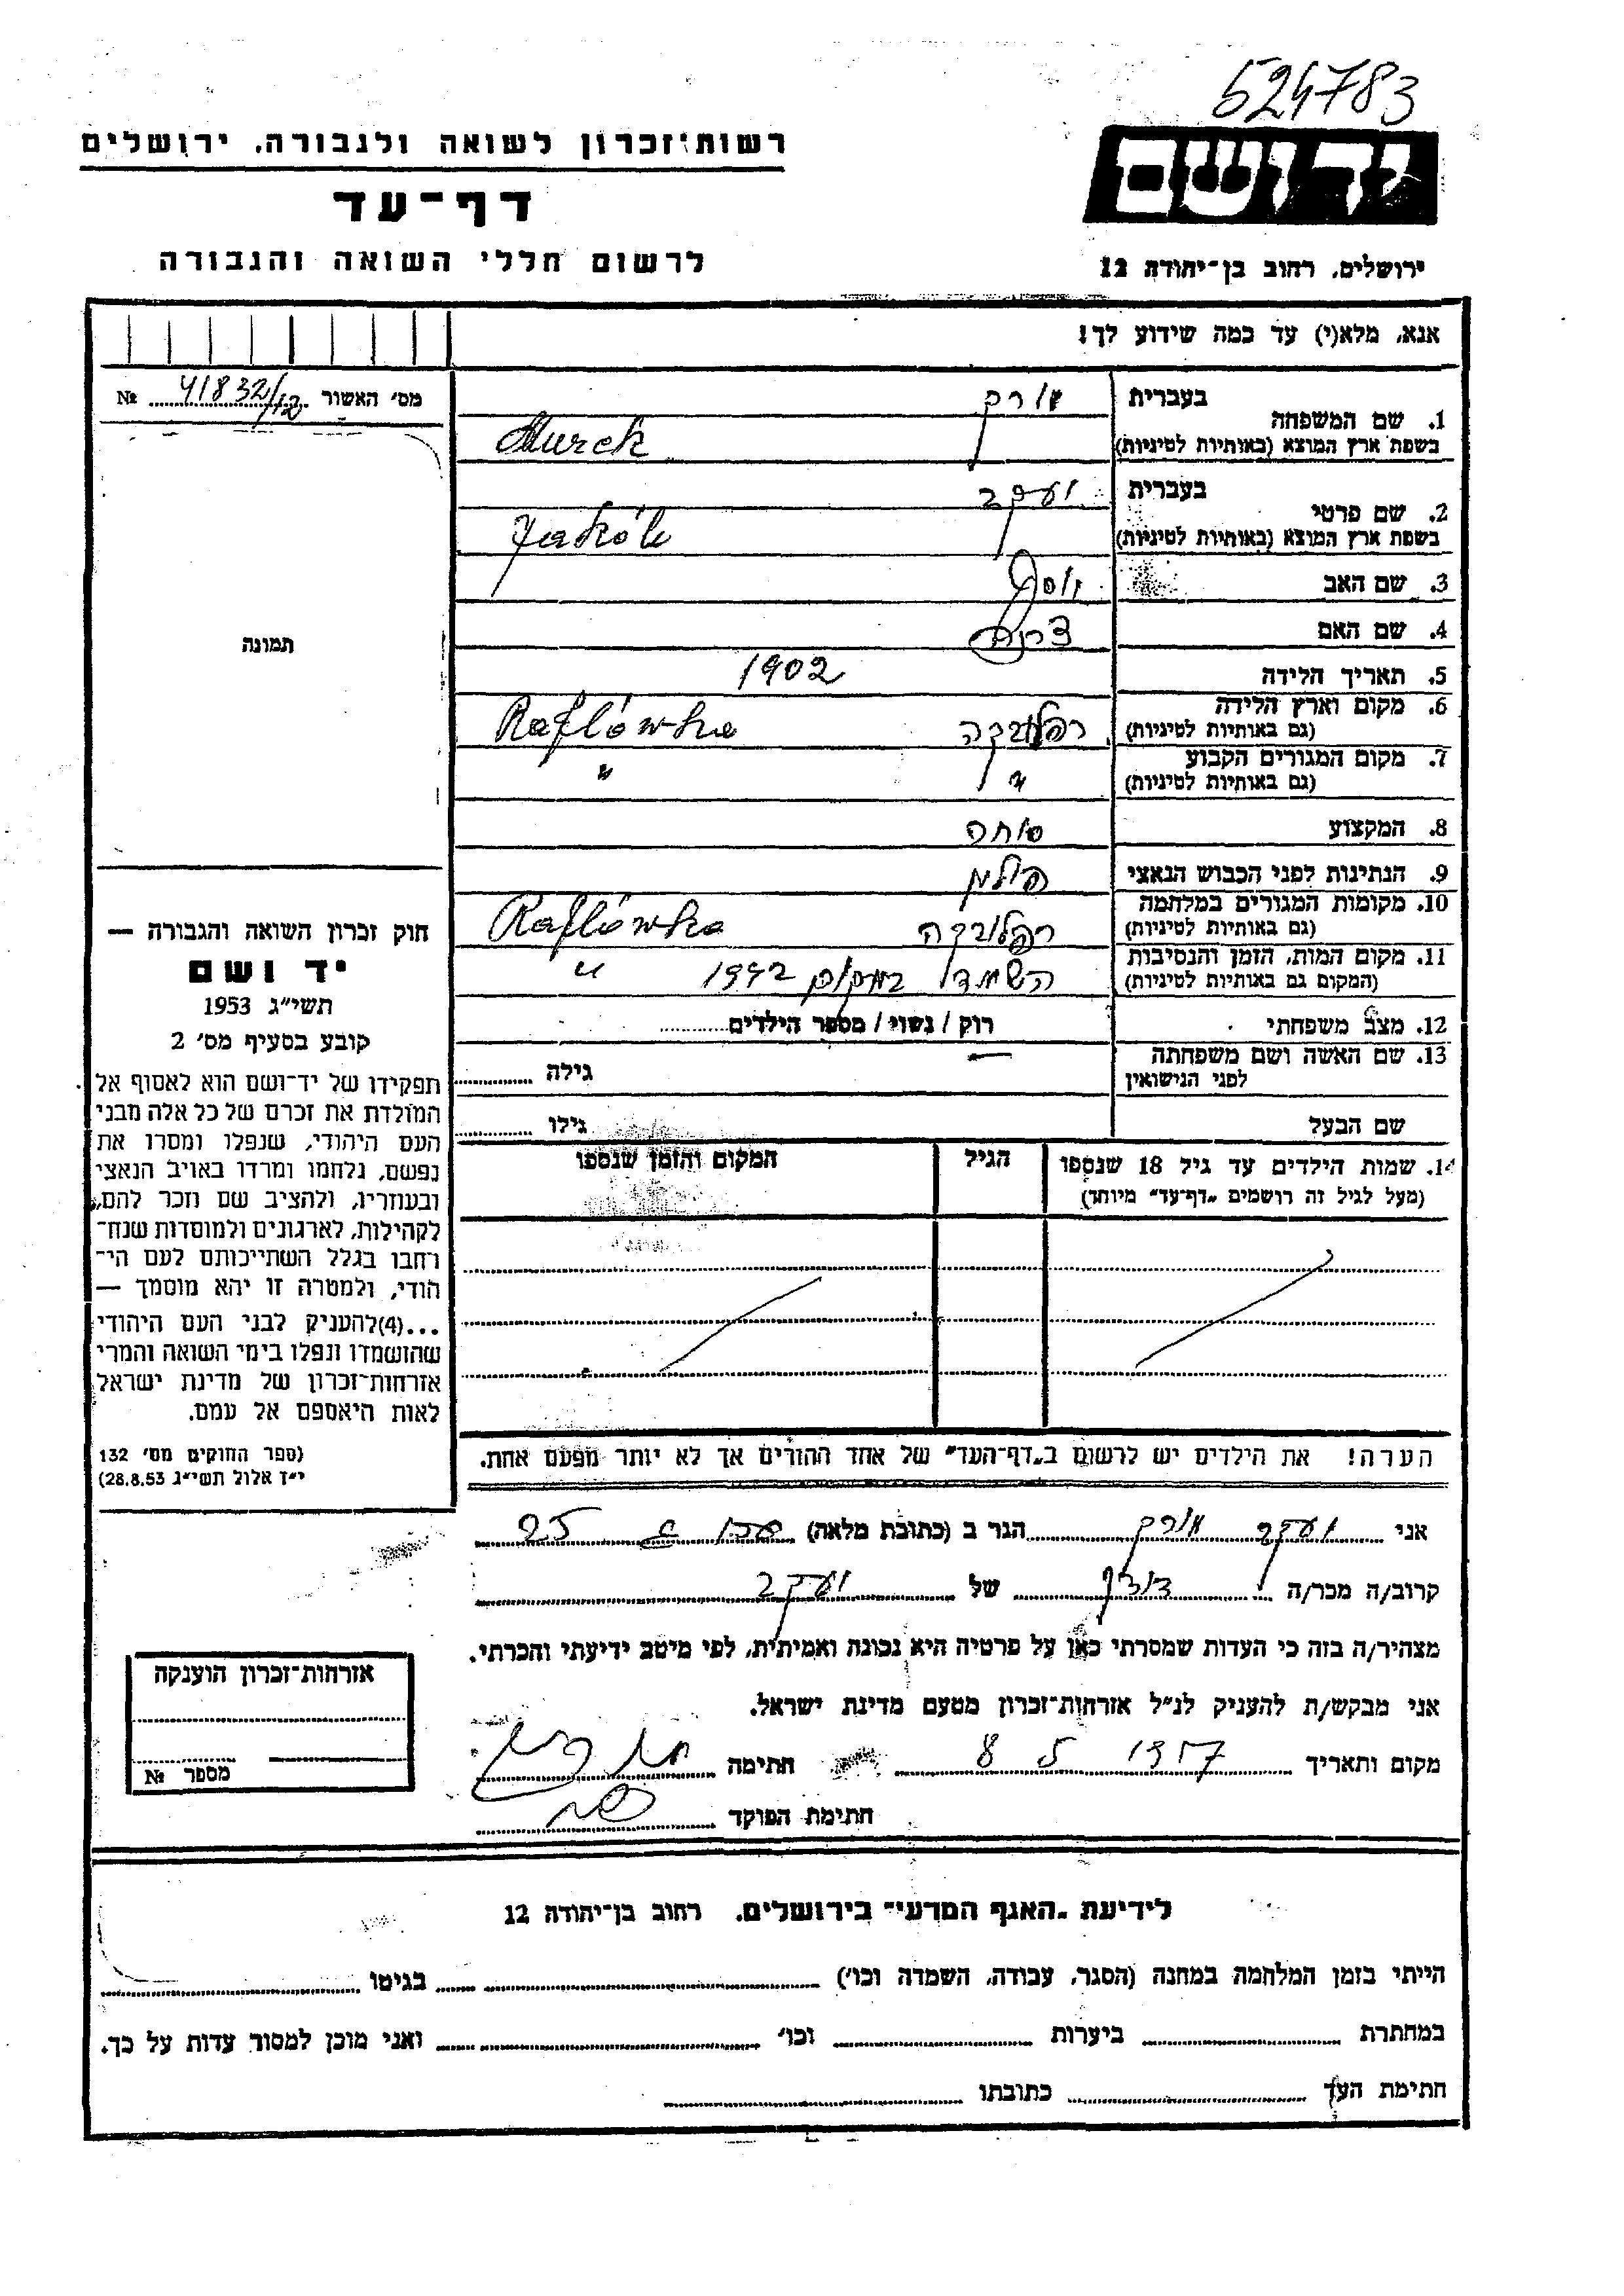 524783
יד ושם
רשות זכרון לשואה ולגבורה, ירושלים
דף-עד
לרשום חללי השואה והגבורה
ירושלים, רחוב בן-יהודה 12
אנא, מלא(י) עד כמה שידוע לך!
מס' האשור 41832/12 №
1. שם המשפחה
בעברית
בשפת ארץ המוצא (באותיות לטיניות) Murek
2. שם פרטי
בעברית יעקב
בשפת ארץ המוצא (באותיות לטיניות) Jakób
3. שם האב יוסף
4. שם האם
5. תאריך הלידה 1902
6. מקום וארץ הלידה רפלובקה Raflówka
(גם באותיות לטיניות)
7. מקום המגורים הקבוע " "
(גם באותיות לטיניות)
8. המקצוע סוחר
9. הנתינות לפני הכבוש הנאצי פולנית
10. מקומות המגורים במלחמה רפלובקה Raflówka
(גם באותיות לטיניות)
11. מקום המות, הזמן והנסיבות 1942 "
(המקום גם באותיות לטיניות)
12. מצב משפחתי רוק / נשוי / מספר הילדים
13. שם האשה ושם משפחתה
לפני הנישואין גילה
שם הבעל גילו
14. שמות הילדים עד גיל 18 שנספו הגיל המקום והזמן שנספו
(מעל לגיל זה רושמים "דף-עד" מיוחד)
הערה! את הילדים יש לרשום ב"דף-העד" של אחד ההורים אך לא יותר מפעם אחת.
תמונה
חוק זכרון השואה והגבורה —
יד ושם
תשי"ג 1953
קובע בסעיף מס' 2
תפקידו של יד-ושם הוא לאסוף אל
המולדת את זכרם של כל אלה מבני
העם היהודי, שנפלו ומסרו את
נפשם, נלחמו ומרדו באויב הנאצי
ובעוזריו, ולהציב שם וזכר להם,
לקהילות, לארגונים ולמוסדות שנח-
רחבו בגלל השתייכותם לעם הי-
הודי, ולמטרה זו יהא מוסמך —
...(4)להעניק לבני העם היהודי
שהושמדו ונפלו בימי השואה והמרי
אזרחות-זכרון של מדינת ישראל
לאות היאספם אל עמם.
(ספר החוקים מס' 132
י"ד אלול תשי"ג 28.8.53)
אני יעקב הגר ב (כתובת מלאה) 25
קרוב/ה מכר/ה של יעקב
מצהיר/ה בזה כי העדות שמסרתי כאן על פרטיה היא נכונה ואמיתית, לפי מיטב ידיעתי והכרתי.
אני מבקש/ת להעניק לנ"ל אזרחות-זכרון מטעם מדינת ישראל.
מקום ותאריך 8 5 1957 חתימה
חתימת הפוקד
אזרחות-זכרון הוענקה
מספר №
לידיעת "האגף המדעי" בירושלים, רחוב בן-יהודה 12
הייתי בזמן המלחמה במחנה (הסגר, עבודה, השמדה וכו') בגיטו
במחתרת ביערות וכו' ואני מוכן למסור עדות על כך.
חתימת העד כתובתו